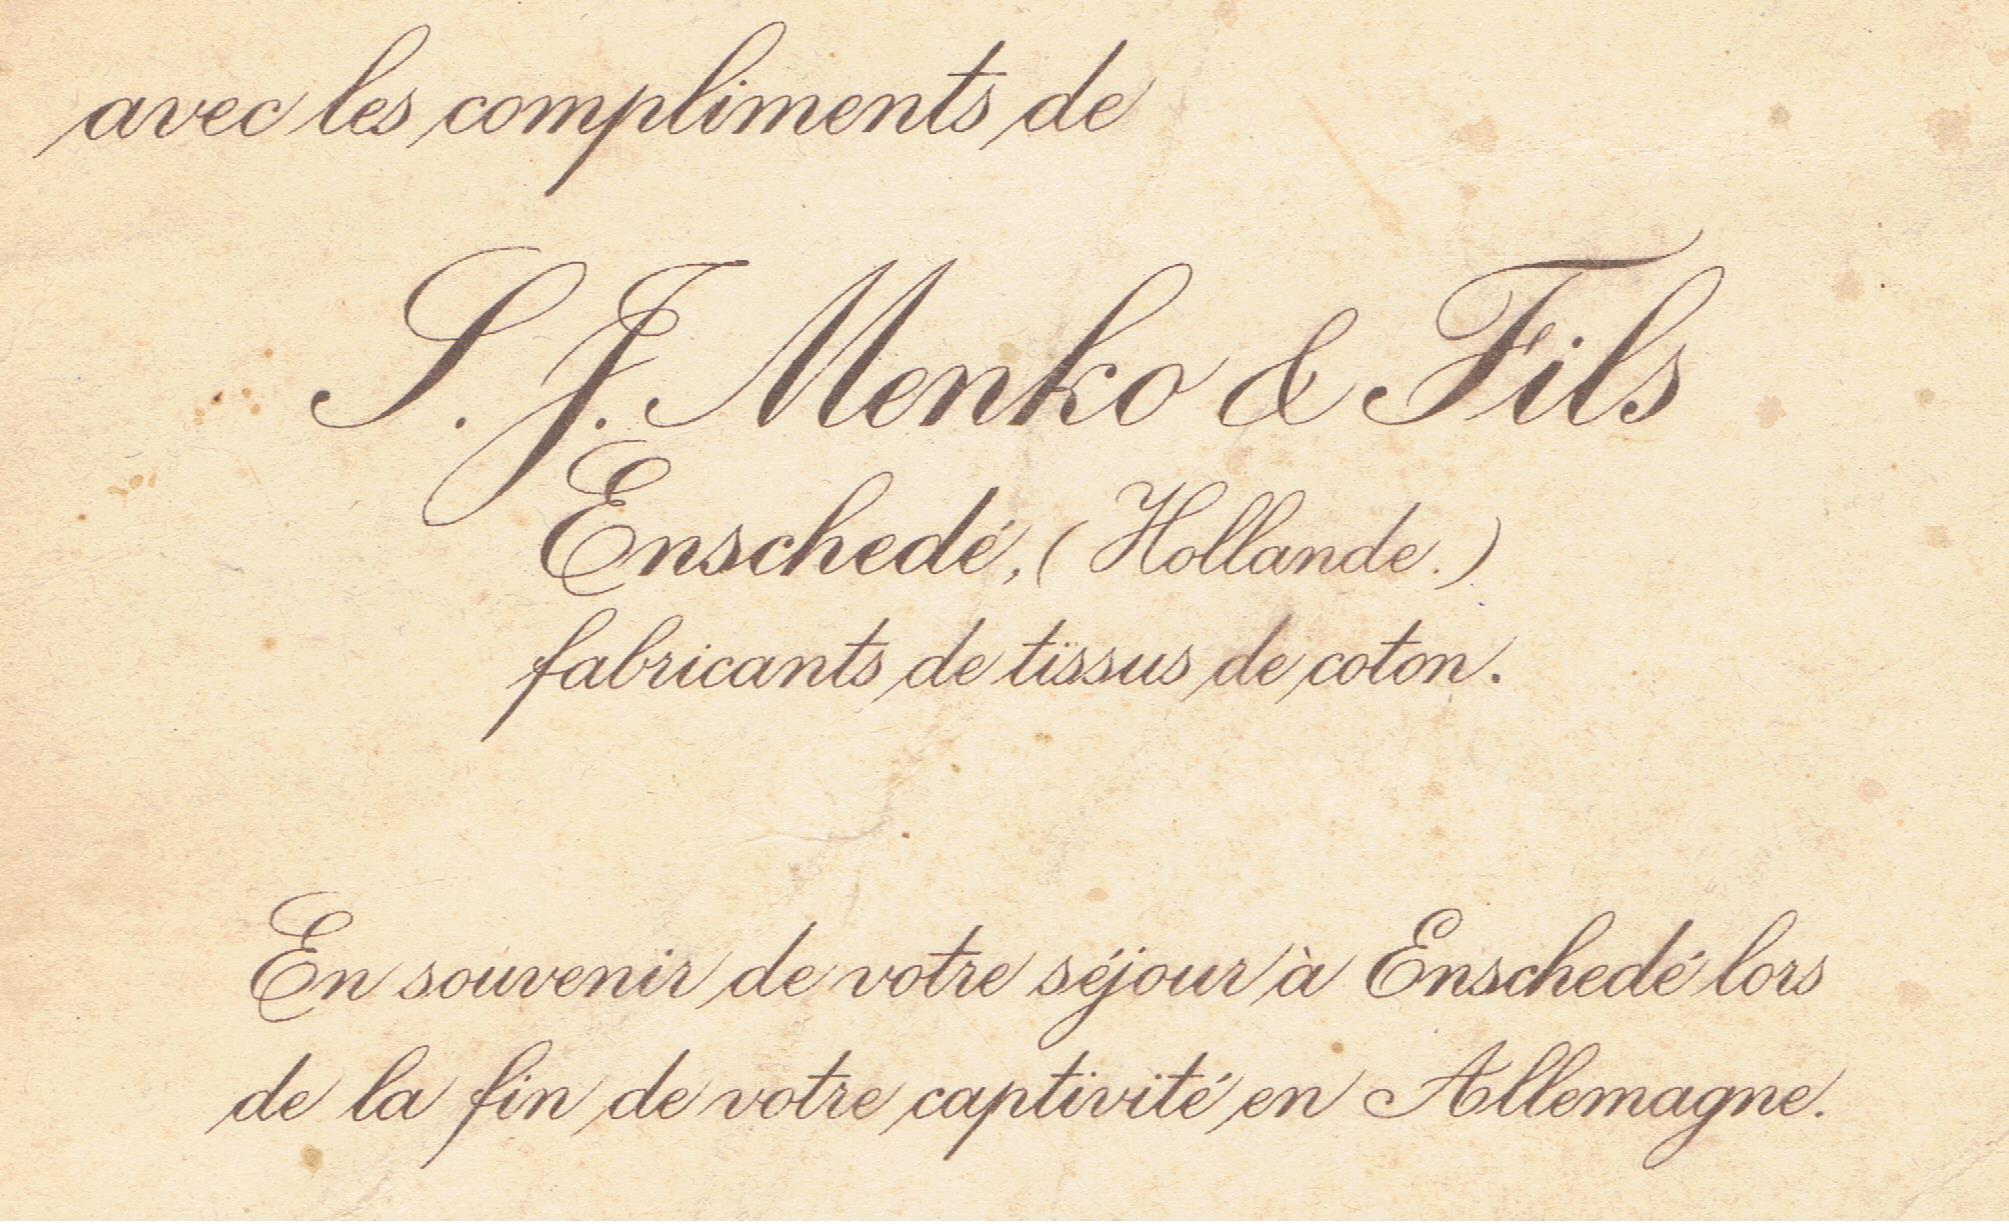 avec les compliments de
S. J. Menko & Fils
Enschedé, (Hollande.)
fabricants de tissus de coton.
En souvenir de votre séjour à Enschedé lors
de la fin de votre captivité en Allemagne.